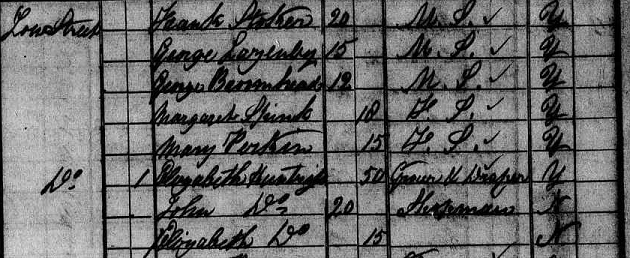 Low Street Frank Stoker 20 M. S. ✓ Y
George Lazenby 15 M. S. ✓ Y
George Broomhead 12 M. S. ✓ Y
Margaret Spink 18 F. S. ✓ Y
Mary Perkin 15 F. S. ✓ Y
Do 1 Elizabeth 50 Grocer & Draper Y
John Do 20 Shopman N
Elizabeth Do 15 N